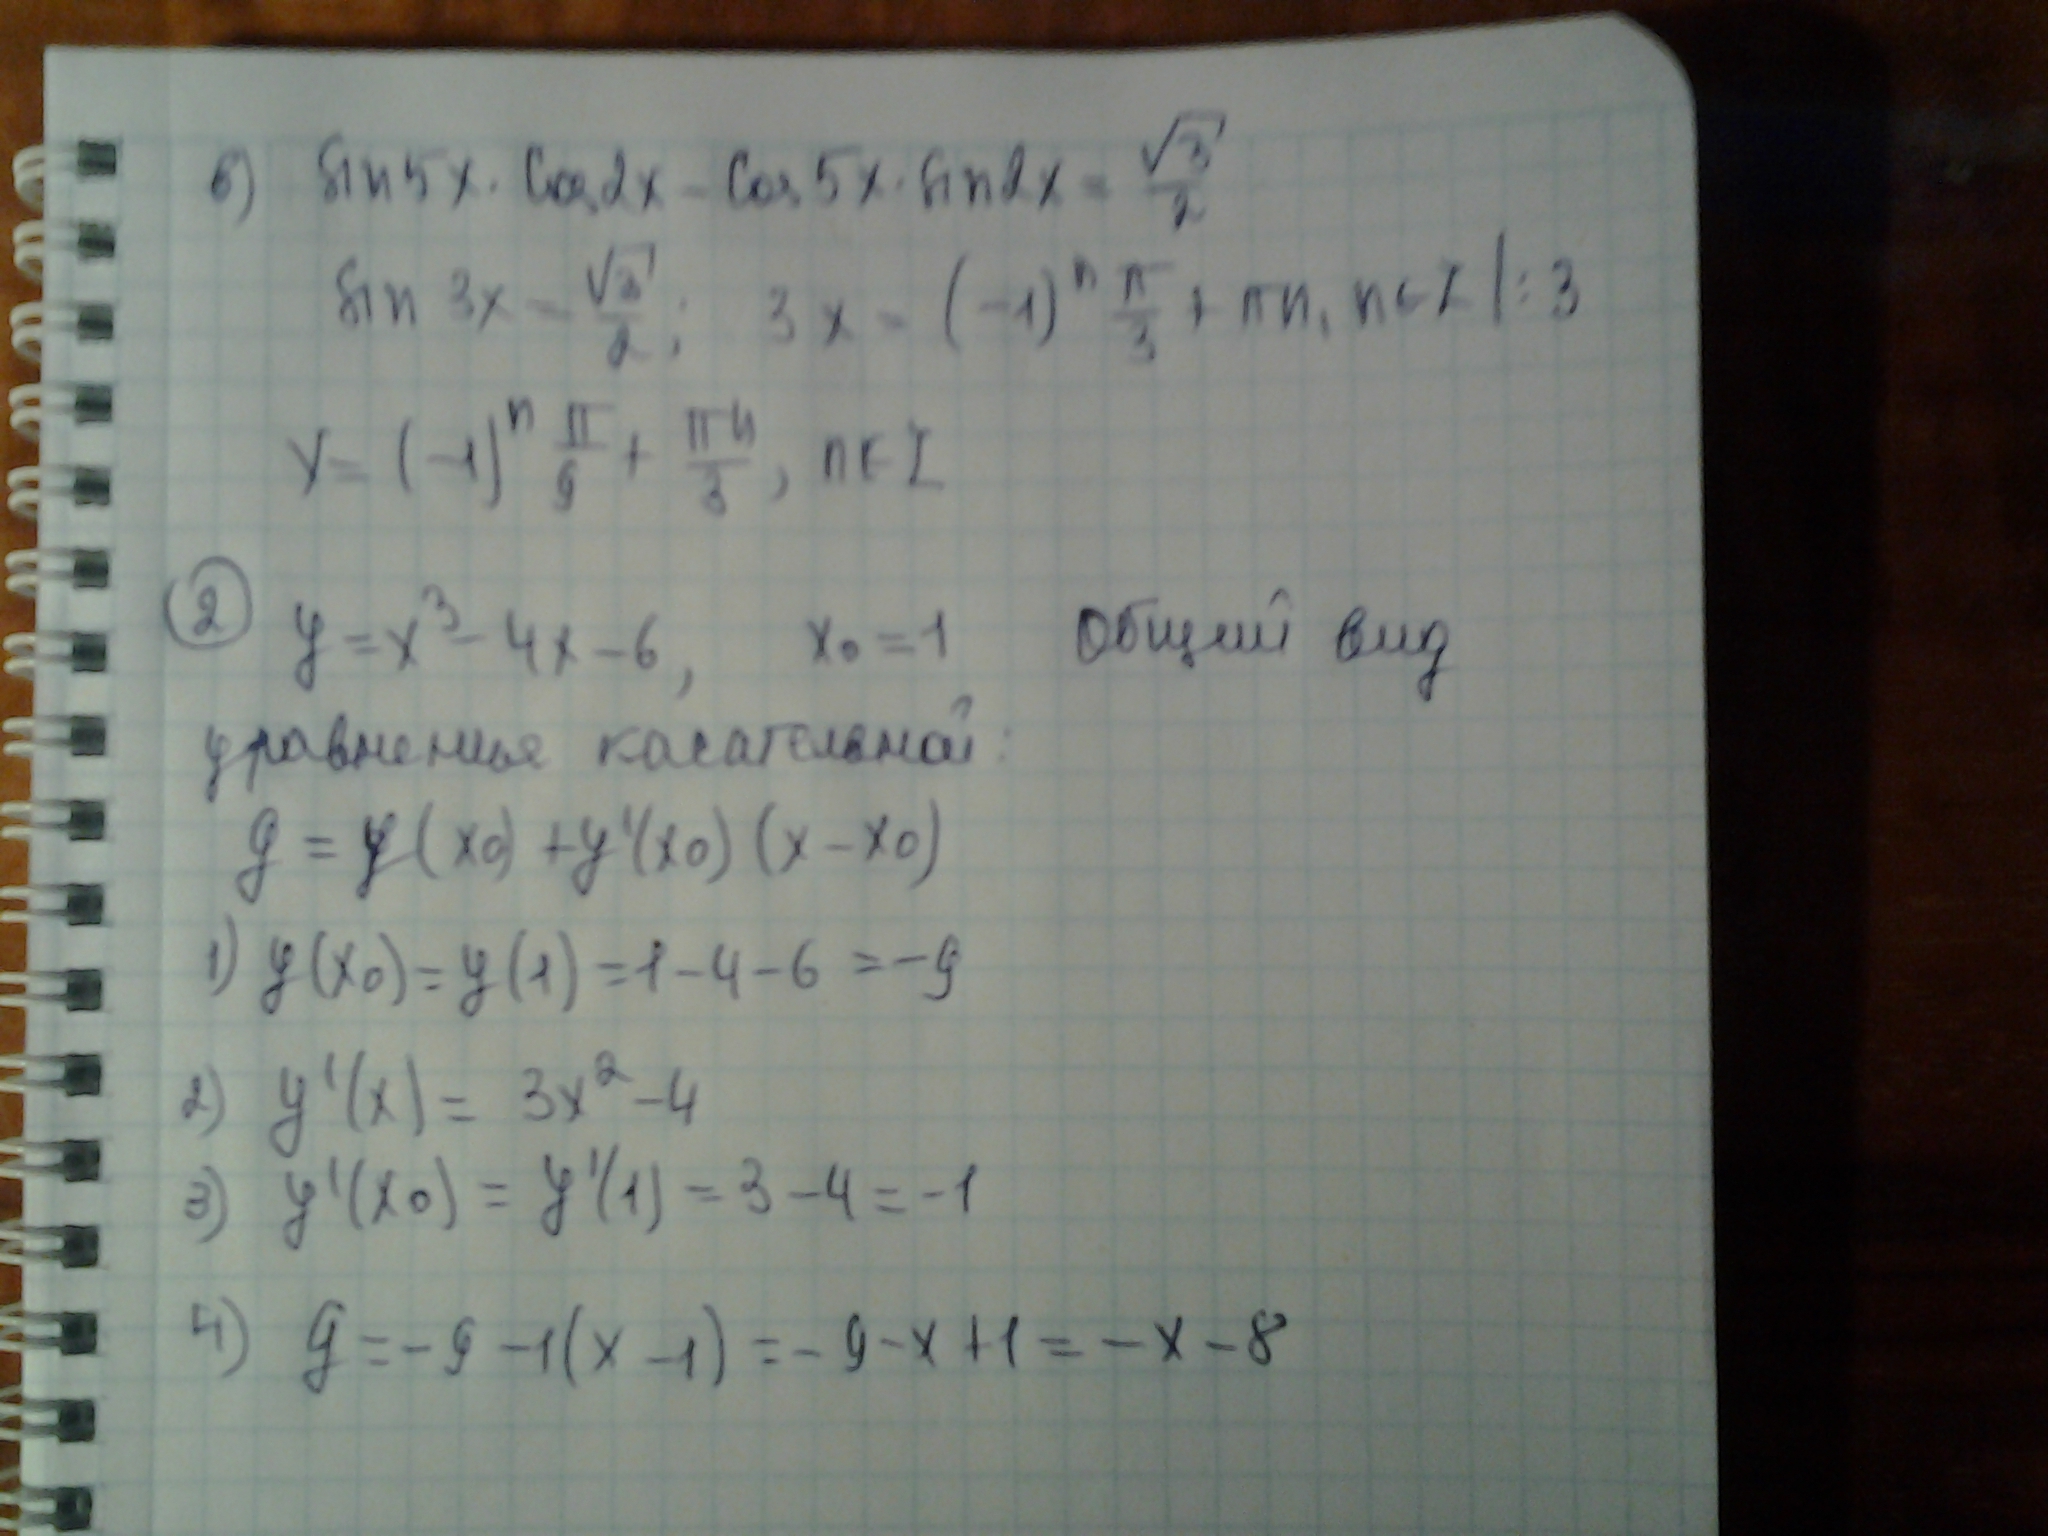 б) sin5x · cos2x - cos5x · sin2x = √3/2
sin 3x = √3/2; 3x = (-1)ⁿ π/3 + πn, n∈Z |: 3
x = (-1)ⁿ π/9 + πn/3, n∈Z
② y = x³ - 4x - 6, x₀ = 1 Общий вид
уравнения касательной:
y = y(x₀) + y'(x₀)(x - x₀)
1) y(x₀) = y(1) = 1 - 4 - 6 = -9
2) y'(x) = 3x² - 4
3) y'(x₀) = y'(1) = 3 - 4 = -1
4) y = -9 - 1(x - 1) = -9 - x + 1 = -x - 8